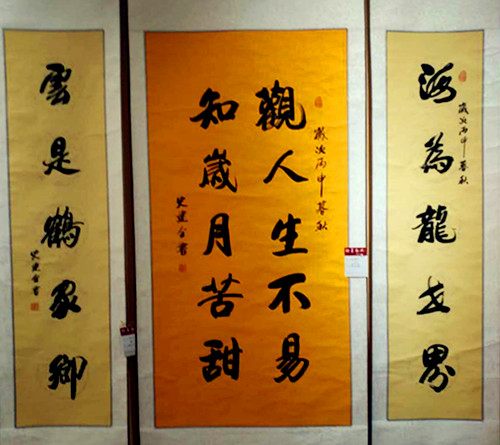 海為龍世界
歲次丙申暮秋
觀人生不易
歲次丙申暮秋
知歲月苦甜
雲是鶴家鄉